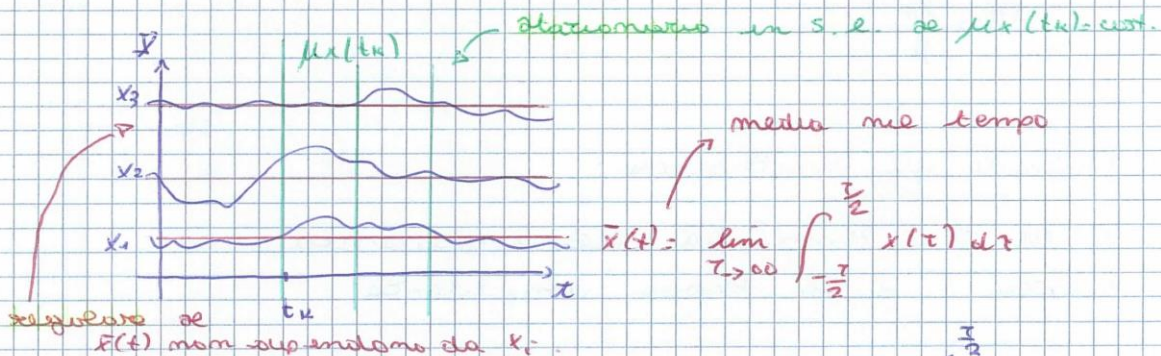 stazionario in s.l. se μx(tk)=cost.
X μx(tk)
x3
media nel tempo
x2
x1 x̄(t)= lim T→∞ ∫ -T/2 T/2 x(τ) dτ
t
tk
regolare se
x̄(t) non dipendono da xi
T/2